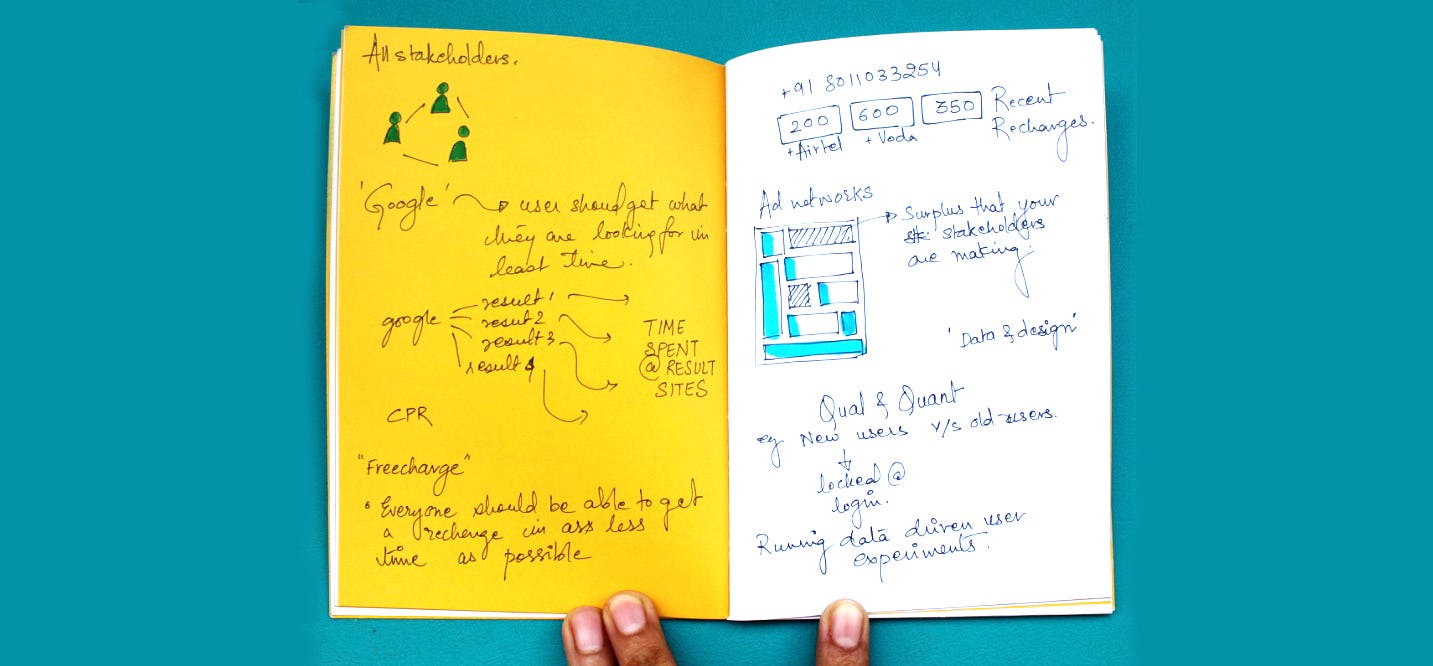 All stakeholders.
'Google' user should get what
they are looking for in
least time.
google
result 1
resut 2
result 3
result 4
TIME
SPENT
@ RESULT
SITES
CPR
"Freecharge"
Everyone should be able to get
a recharge in ass less
time as possible
+91 8011033254
200 600 350 Recent
Recharges.
+Airtel + Voda
Ad networks
Surplus that your
stakeholders
are making.
'Data & design'
Qual & Quant
eg New users v/s old users.
locked @
login.
Running data driven user
experiments.